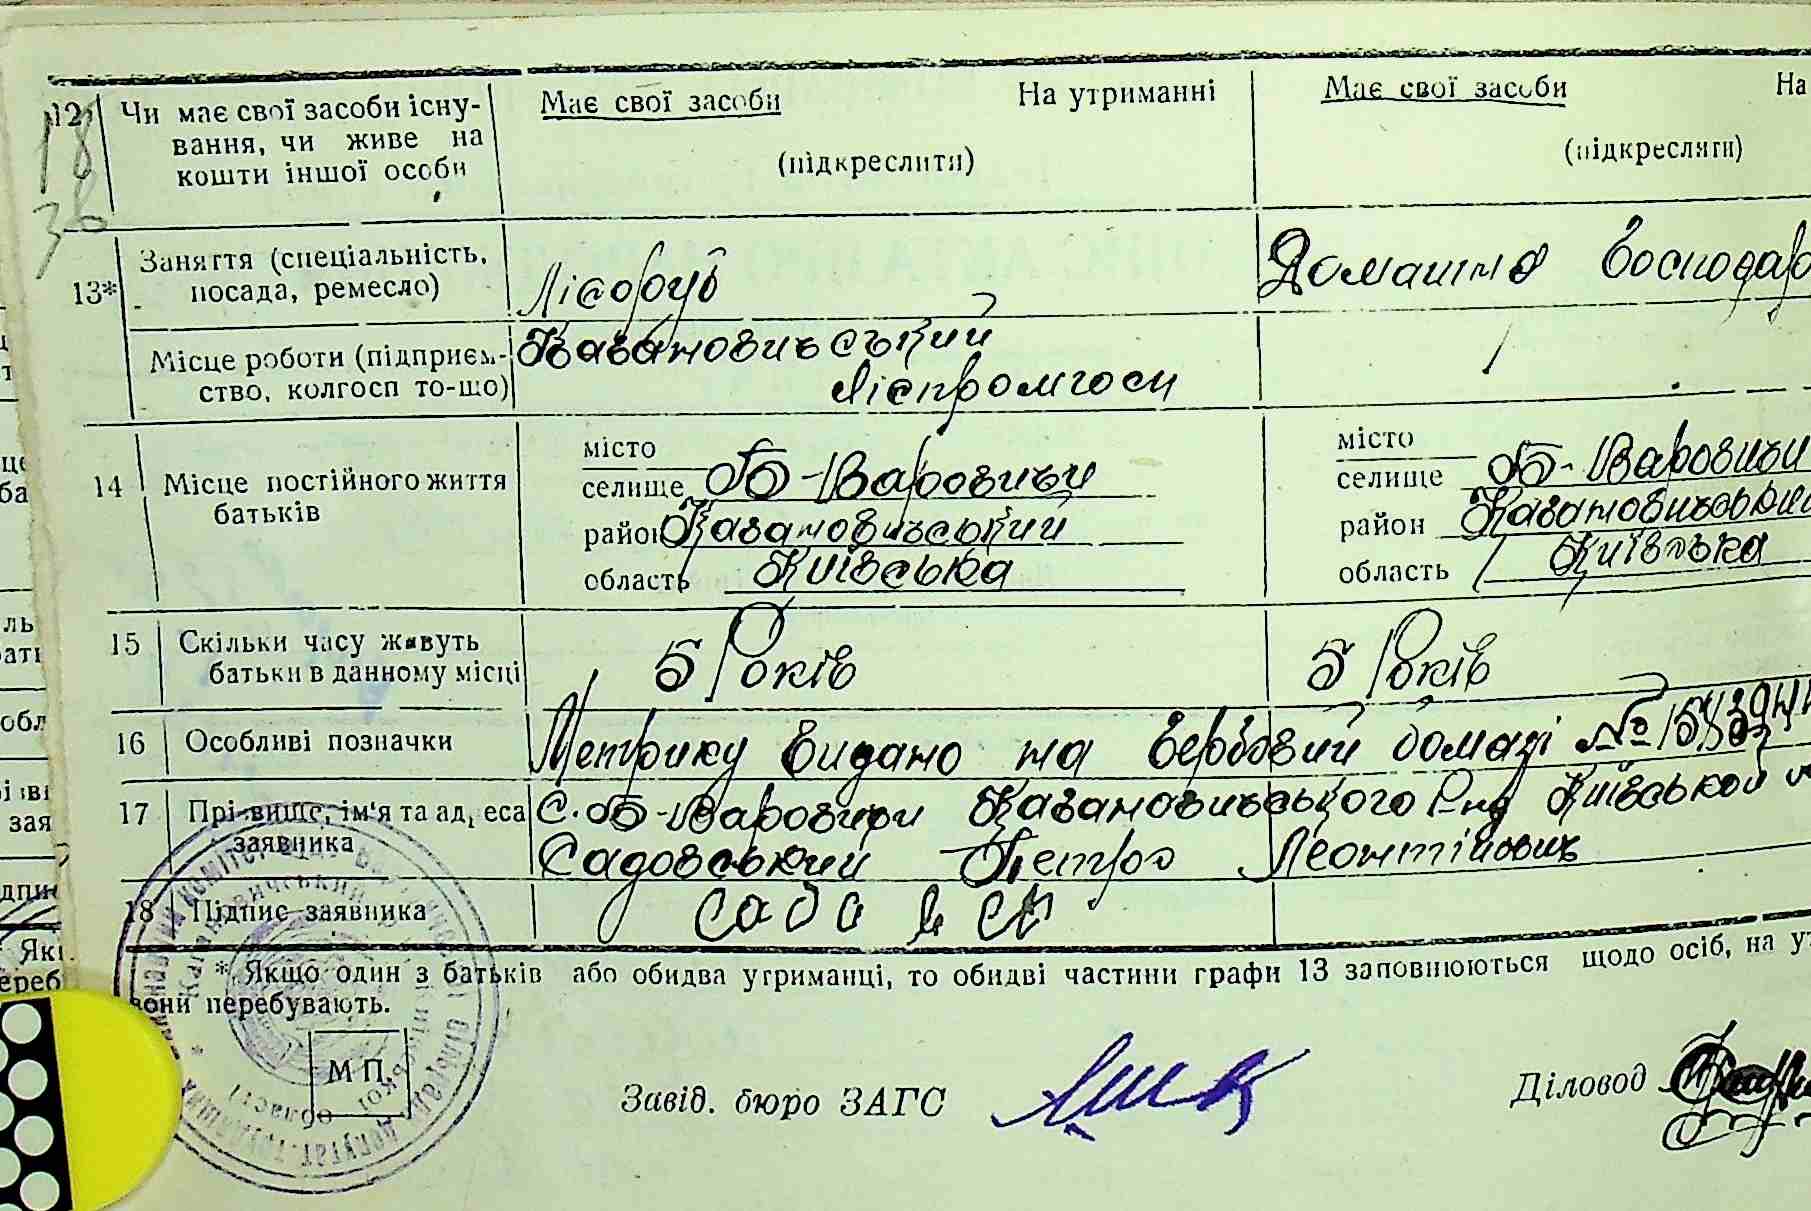 12 Чи має свої засоби існу- Має свої засоби На утриманні Має свої засоби На
18 вання, чи живе на
кошти іншої особи (підкреслити) (підкреслити)
38
13* Заняття (спеціальність, посада, ремесло) Лісоруб Домашня Господар
Місце роботи (підприєм- Кагановичський
ство, колгосп то-що) Ліспромгосп
14 Місце постійного життя батьків місто місто
селище Б-Варовичи селище Б-Варовичи
район Кагановичський район Кагановичський
область Київська область Київська
15 Скільки часу живуть
батьки в данному місці 5 Років 5 Років
16 Особливі позначки Метрику видано на гербовий бомазі №
17 Прі-вище, ім'я та адреса С. Б-Варовичи Кагановичського Р-ну Київськой
заявника Садовський Петро Леонтійович
18 Підпис заявника Садовсь
* Якщо один з батьків або обидва утриманці, то обидві частини графи 13 заповнюються щодо осіб, на у
вони перебувають.
М П.
Завід. бюро ЗАГС Діловод